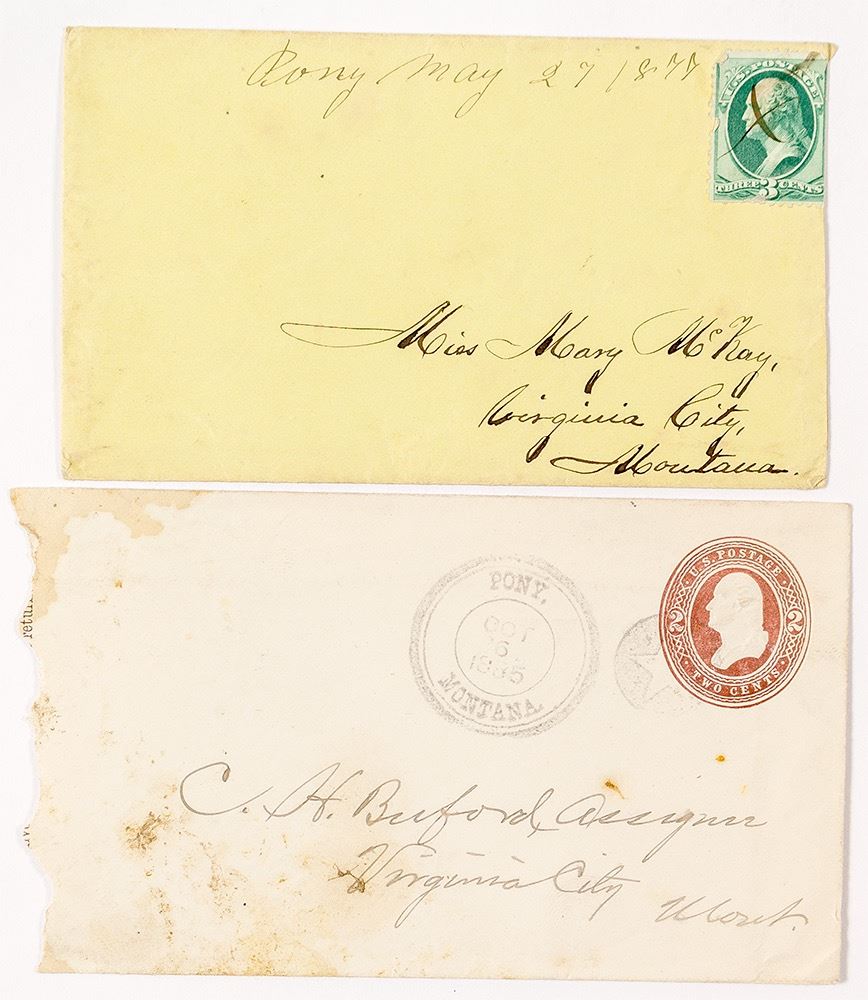 Pony May 27 1877
U.S. POSTAGE
THREE 3 CENTS
Miss Mary McKay,
Virginia City,
Montana.
PONY,
OCT
6
1885
MONTANA.
U.S. POSTAGE
2 2
TWO CENTS
retur
C. H. Buford, Assignee
Virginia City
Mont.